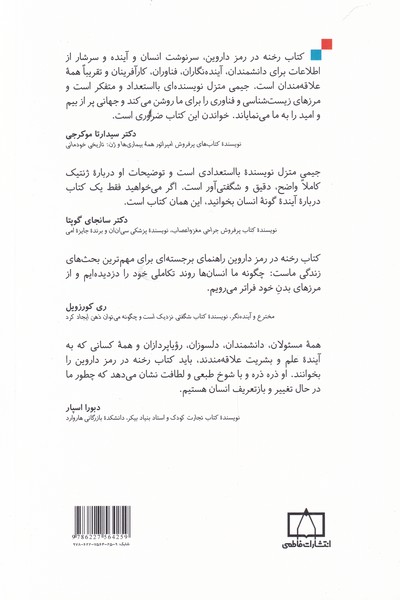 کتاب رخنه در رمز داروین، سرنوشت انسان و آینده و سرشار از
اطلاعات برای دانشمندان، آینده‌نگاران، فناوران، کارآفرینان و تقریباً همهٔ
علاقه‌مندان است. جیمی متزل نویسنده‌ای بااستعداد و متفکر است و
مرزهای زیست‌شناسی و فناوری را برای ما روشن می‌کند و جهانی پر از بیم
و امید را به ما می‌نمایاند. خواندن این کتاب ضروری است.
دکتر سیدارتا موکرجی
نویسندهٔ کتاب‌های پرفروش امپراتور همهٔ بیماری‌ها و ژن: تاریخی خودمانی
جیمی متزل نویسندهٔ بااستعدادی است و توضیحات او دربارهٔ ژنتیک
کاملاً واضح، دقیق و شگفتی‌آور است. اگر می‌خواهید فقط یک کتاب
دربارهٔ آیندهٔ گونهٔ انسان بخوانید، این همان کتاب است.
دکتر سانجای گوپتا
نویسندهٔ کتاب پرفروش جراحی مغزواعصاب، نویسندهٔ پزشکی سی‌ان‌ان و برندهٔ جایزهٔ امی
کتاب رخنه در رمز داروین راهنمای برجسته‌ای برای مهم‌ترین بحث‌های
زندگی ماست: چگونه ما انسان‌ها روند تکاملی خود را دزدیده‌ایم و از
مرزهای بدنِ خود فراتر می‌رویم.
ری کورزویل
مخترع و آینده‌نگر، نویسندهٔ کتاب شگفتی نزدیک است و چگونه می‌توان ذهن ایجاد کرد
همهٔ مسئولان، دانشمندان، دلسوزان، رؤیاپردازان و همهٔ کسانی که به
آیندهٔ علم و بشریت علاقه‌مندند، باید کتاب رخنه در رمز داروین را
بخوانند. او ذره ذره و با شوخ طبعی و لطافت نشان می‌دهد که چطور ما
در حال تغییر و بازتعریف انسان هستیم.
دبورا اسپار
نویسندهٔ کتاب تجارت کودک و استاد بنیاد بیکر، دانشکدهٔ بازرگانی هاروارد
انتشارات فاطمی
9 786227 564259